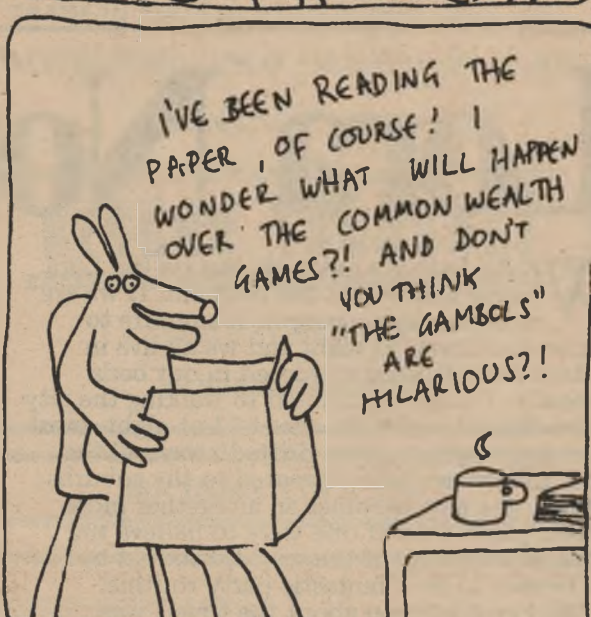 I'VE BEEN READING THE
PAPER, OF COURSE! I
WONDER WHAT WILL HAPPEN
OVER THE COMMON WEALTH
GAMES?! AND DON'T
YOU THINK
"THE GAMBOLS"
ARE
HILARIOUS?!